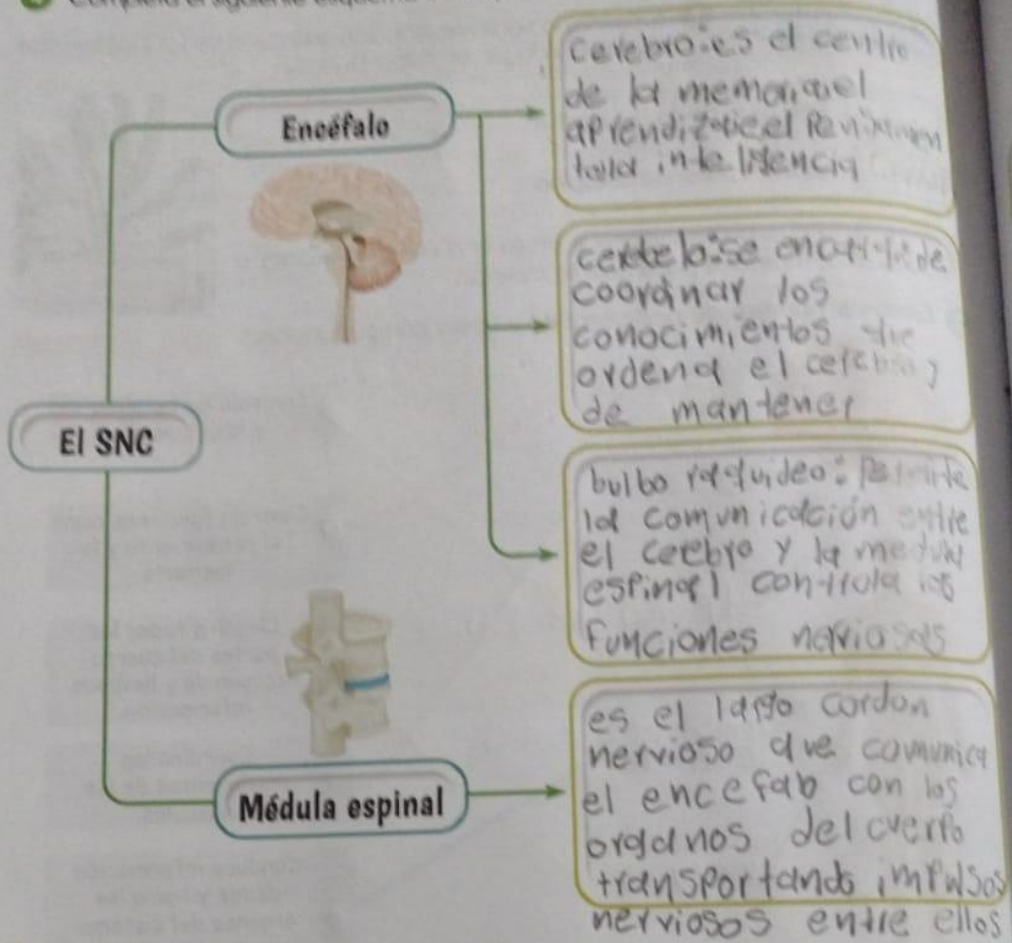 Encéfalo
El SNC
Médula espinal
cerebro: es el centro
de la memoria, el
aprendizaje, el
la inteligencia
se de
coordinar los
conocimientos
ordena el cerebro y
de mantener
bulbo raquideo: Permite
la comunicación entre
el ceebro y la medula
espinal controla las
funciones nerviosas
es el largo cordon
nervioso que comunica
el encefalo con los
organos del cuerpo
transportando impulsos
nerviosos entre ellos